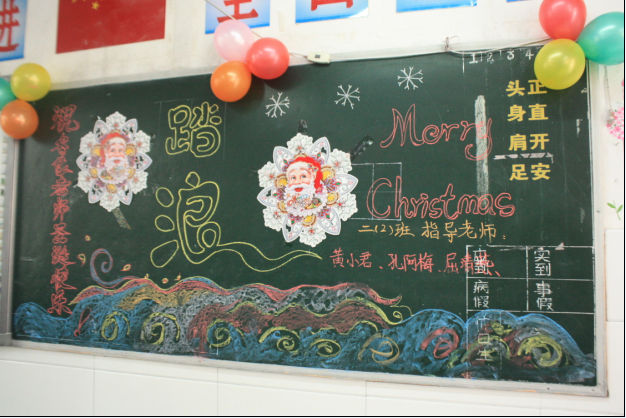 进
1 2 3 4
头正
身直
肩开
足安
祝
老师圣诞快乐
踏
浪
Merry
Christmas
二(2)班 指导老师:
黄小君、孔阿梅、屈
实到
病假 事假
日生